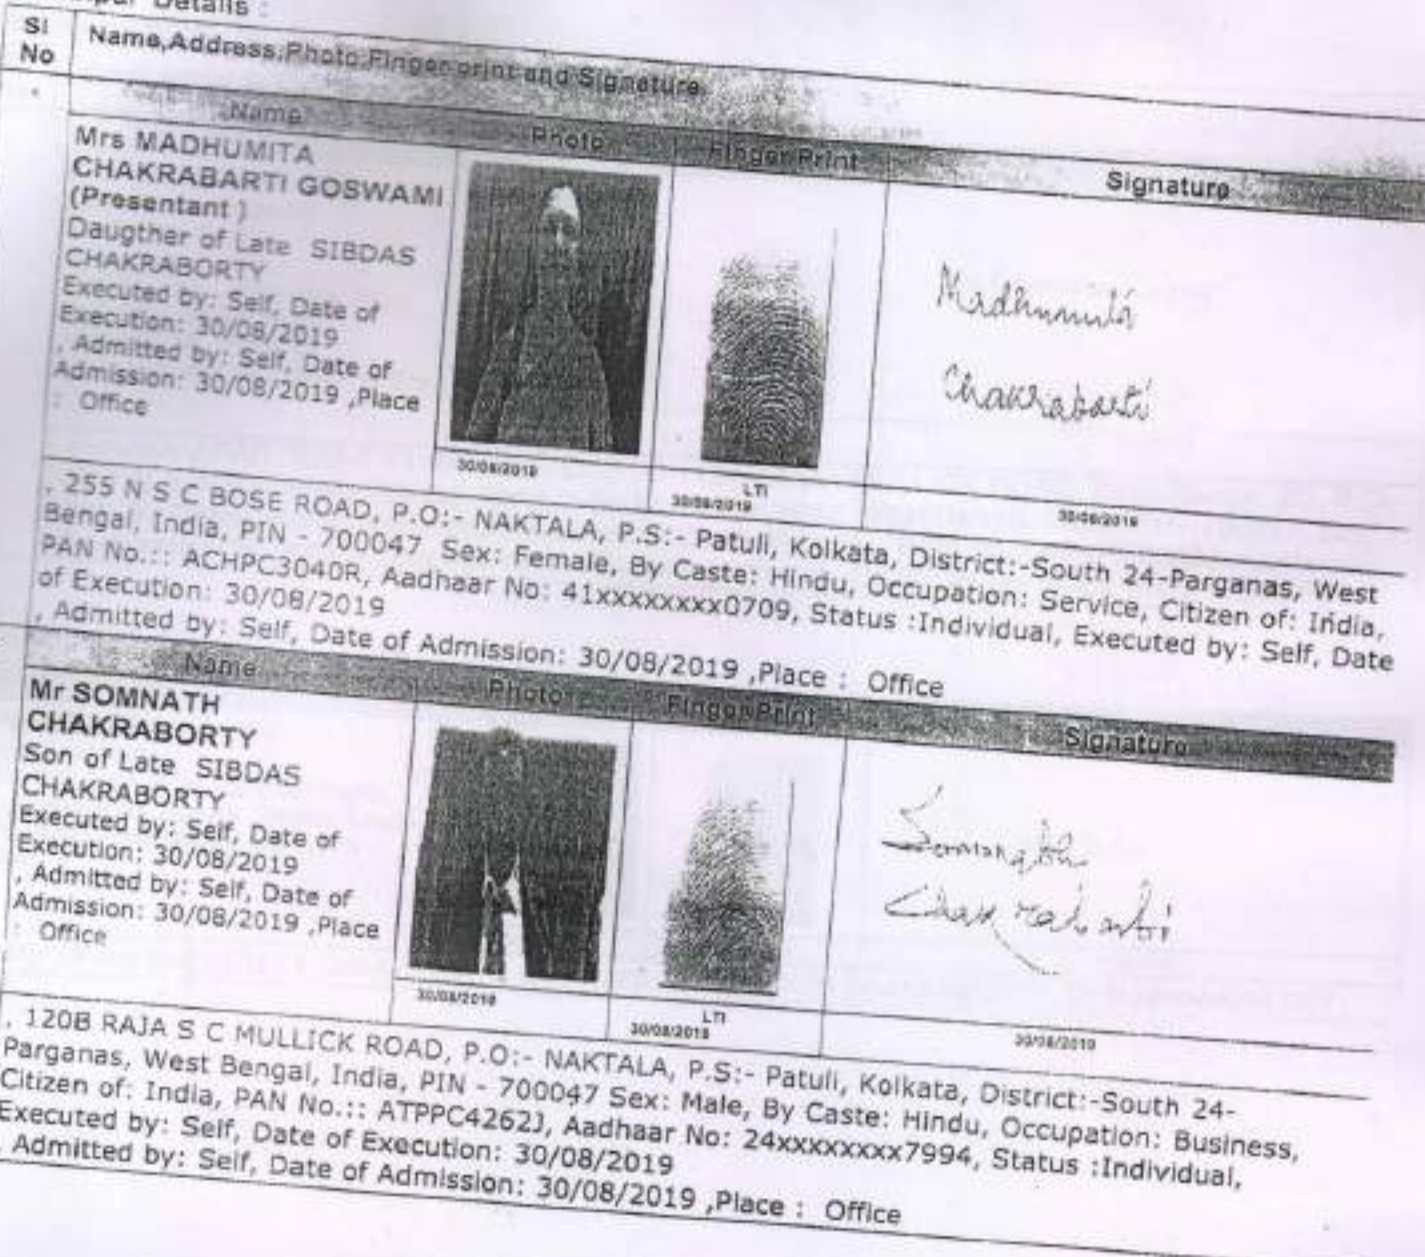 Details :
Sl No
Name,Address,Photo,Finger print and Signature
Name
Photo
Finger Print
Signature
Mrs MADHUMITA
CHAKRABARTI GOSWAMI
(Presentant )
Daugther of Late SIBDAS
CHAKRABORTY
Executed by: Self, Date of
Execution: 30/08/2019
, Admitted by: Self, Date of
Admission: 30/08/2019 ,Place
: Office
Madhumita
Chakrabarti
30/08/2019
LTI
30/08/2019
30/08/2019
, 255 N S C BOSE ROAD, P.O:- NAKTALA, P.S:- Patuli, Kolkata, District:-South 24-Parganas, West
Bengal, India, PIN - 700047 Sex: Female, By Caste: Hindu, Occupation: Service, Citizen of: India,
PAN No.:: ACHPC3040R, Aadhaar No: 41xxxxxxxx0709, Status :Individual, Executed by: Self, Date
of Execution: 30/08/2019
, Admitted by: Self, Date of Admission: 30/08/2019 ,Place : Office
Name
Photo
Finger Print
Signature
Mr SOMNATH
CHAKRABORTY
Son of Late SIBDAS
CHAKRABORTY
Executed by: Self, Date of
Execution: 30/08/2019
, Admitted by: Self, Date of
Admission: 30/08/2019 ,Place
: Office
Somnath
Chakrabarti
30/08/2019
LTI
30/08/2019
30/08/2019
, 120B RAJA S C MULLICK ROAD, P.O:- NAKTALA, P.S:- Patuli, Kolkata, District:-South 24-
Parganas, West Bengal, India, PIN - 700047 Sex: Male, By Caste: Hindu, Occupation: Business,
Citizen of: India, PAN No.:: ATPPC4262J, Aadhaar No: 24xxxxxxxx7994, Status :Individual,
Executed by: Self, Date of Execution: 30/08/2019
, Admitted by: Self, Date of Admission: 30/08/2019 ,Place : Office